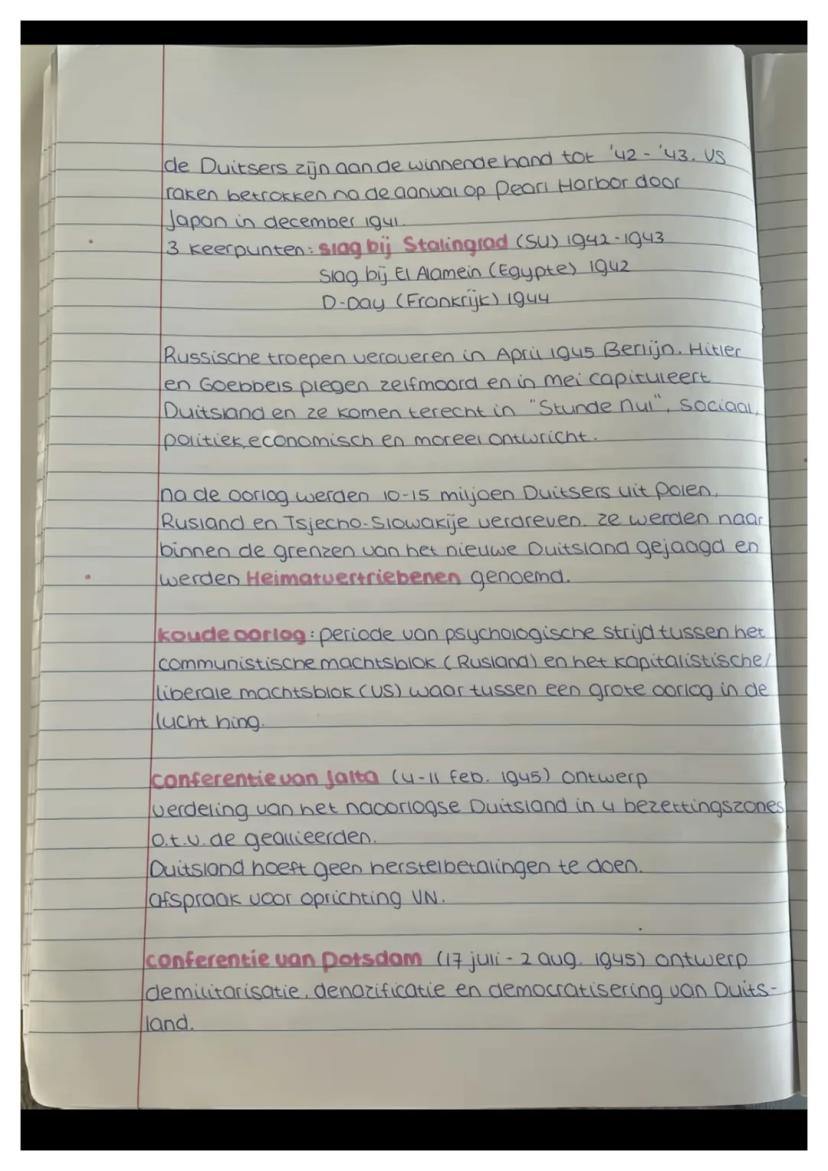 de Duitsers zijn aan de winnende hand tot '42 - '43. US
raken betrokken na de aanval op Pearl Harbor door
Japan in december 1941.
3 keerpunten: slag bij Stalingrad (SU) 1942-1943
Slag bij El Alamein (Egypte) 1942
D-Day (Frankrijk) 1944
Russische troepen veroveren in April 1945 Berlijn. Hitler
en Goebbels plegen zelfmoord en in mei capituleert
Duitsland en ze komen terecht in "Stunde nul", sociaal,
politiek, economisch en moreel ontwricht.
na de oorlog werden 10-15 miljoen Duitsers uit Polen,
Rusland en Tsjecho-Slowakije verdreven. ze werden naar
binnen de grenzen van het nieuwe Duitsland gejaagd en
werden Heimatvertriebenen genoemd.
koude oorlog: periode van psychologische strijd tussen het
communistische machtsblok (Rusland) en het kapitalistische/
liberale machtsblok (US) waar tussen een grote oorlog in de
lucht hing.
conferentie van Jalta (4-11 feb. 1945) ontwerp
verdeling van het naoorlogse Duitsland in 4 bezettingszones
o.t.v. de geallieerden.
Duitsland hoeft geen herstelbetalingen te doen.
afspraak voor oprichting VN.
conferentie van Potsdam (17 juli - 2 aug. 1945) ontwerp
demilitarisatie, denazificatie en democratisering van Duits-
land.